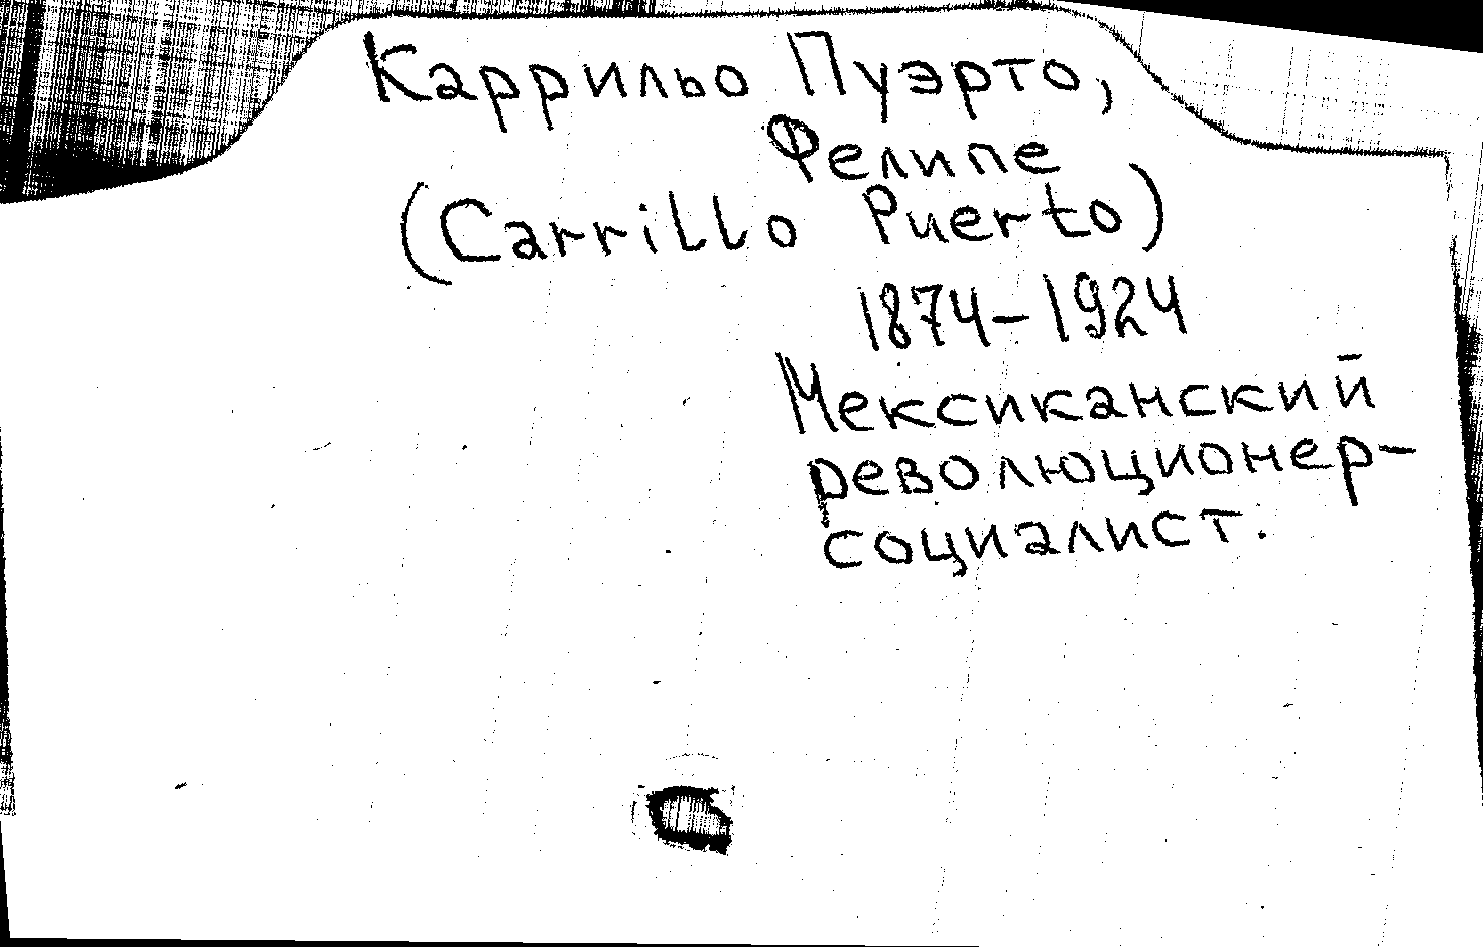 Каррильо Пуэрто,
Фелипе
(Carrillo Puerto)
1874-1924
Мексиканский
революционер-
социалист.